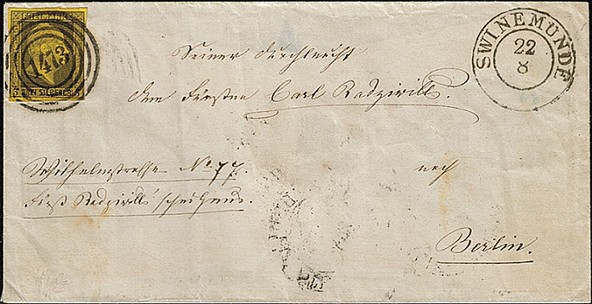 FREIMARKE
1413
SWINEMÜNDE
22
8
Seiner Durchlaucht
dem Fürsten Carl Radziwill.
Wilhelmstrasse No 77.
nach
Fürst Radziwills'
Berlin.